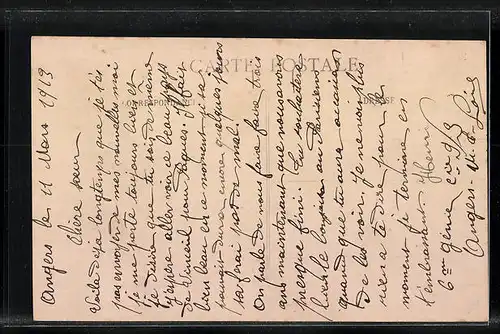 CARTE POSTALE
CORRESPONDANCE
ADRESSE
Angers le 11 Mars 1913
Chère soeur
Voila déja longtemps que je t'ès
pas envoyer de mes nouvelles moi
je me porte toujours bien et
je désire que tu sois de même
j'espère aller voir le beau pays
de pour Pâques. Il fait
bien beau en ce moment si sa
pouvait durer encore quelques jours
sa ferai pas de mal.
On parle de nous faire faire trois
ans maintenant que nous avons
presque fini. Tu souhaitera
bien le bonjour au Parisiens
quand que tu aura occasion
de les voir. Je ne vois plus
rien a te dire pour le
moment je termine en
t'embrassant Henri
6me génie
Angers M. et Loire